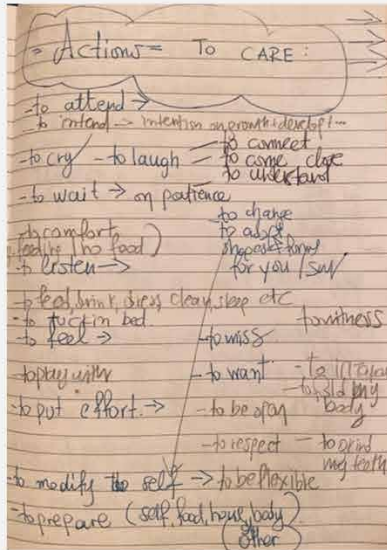 Actions = TO CARE :
- to attend →
- to intend → intention on growth + develop t...
- to cry - to laugh - to connect
- to come close
to understand
- to wait → on patience
to change
- to comfort to adapt
feeding (no food) shapes + forms
- to listen → for you / self
- to feed, drink, dress, clean, sleep etc
- to tuck in bed to witness
- to feel → - to miss
- to play with - to want
- to hold my body
- to put effort → - to be open
- to respect - to grind my teeth
- to modify the self → to be flexible
- to prepare (self, food, house, body)
(other)